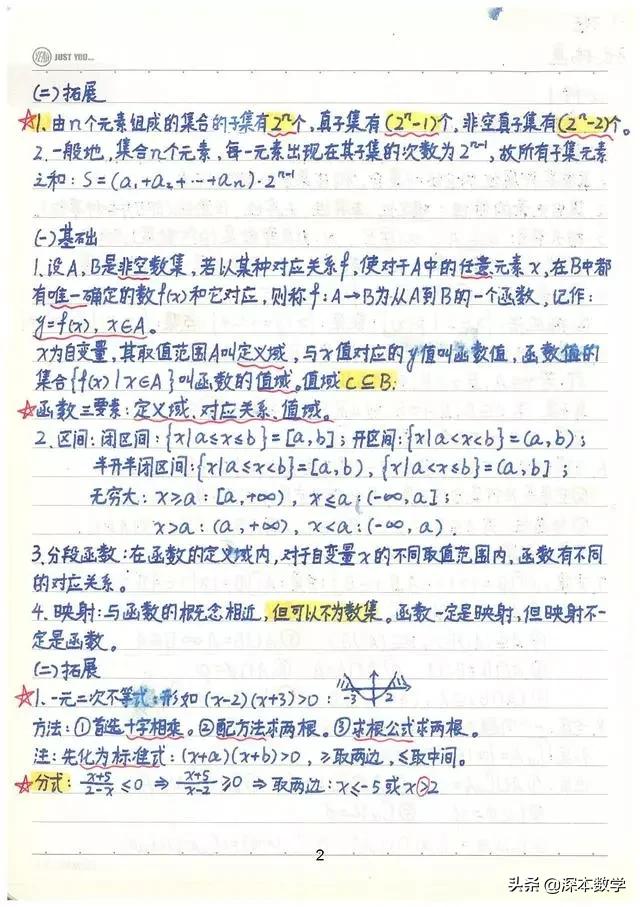 YEAH JUST YOU...
(二)拓展
☆1.由n个元素组成的集合的子集有2ⁿ个,真子集有(2ⁿ-1)个,非空真子集有(2ⁿ-2)个。
2.一般地,集合n个元素,每一元素出现在其子集的次数为2ⁿ⁻¹,故所有子集元素
之和:S=(a₁+a₂+…+an)·2ⁿ⁻¹
(一)基础
1.设A,B是非空数集,若以某种对应关系f,使对于A中的任意元素x,在B中都
有唯一确定的数f(x)和它对应,则称f:A→B为从A到B的一个函数,记作:
y=f(x),x∈A。
x为自变量,其取值范围A叫定义域,与x值对应的y值叫函数值,函数值的
集合{f(x)|x∈A}叫函数的值域。值域C⊆B.
☆函数三要素:定义域、对应关系、值域。
2.区间:闭区间:{x|a≤x≤b}=[a,b];开区间:{x|a<x<b}=(a,b);
半开半闭区间:{x|a≤x<b}=[a,b),{x|a<x≤b}=(a,b];
无穷大:x≥a:[a,+∞),x≤a:(-∞,a];
x>a:(a,+∞),x<a:(-∞,a).
3.分段函数:在函数的定义域内,对于自变量x的不同取值范围内,函数有不同
的对应关系。
4.映射:与函数的概念相近,但可以不为数集。函数一定是映射,但映射不一
定是函数。
(二)拓展
☆1.一元二次不等式:形如(x-2)(x+3)>0: -3 2
方法:①首选十字相乘。②配方法求两根。③求根公式求两根。
注:先化为标准式:(x+a)(x+b)>0,≥取两边,≤取中间。
☆分式:(x+5)/(2-x)≤0⇒(x+5)/(x-2)≥0⇒取两边:x≤-5或x>2
2
头条@深本数学